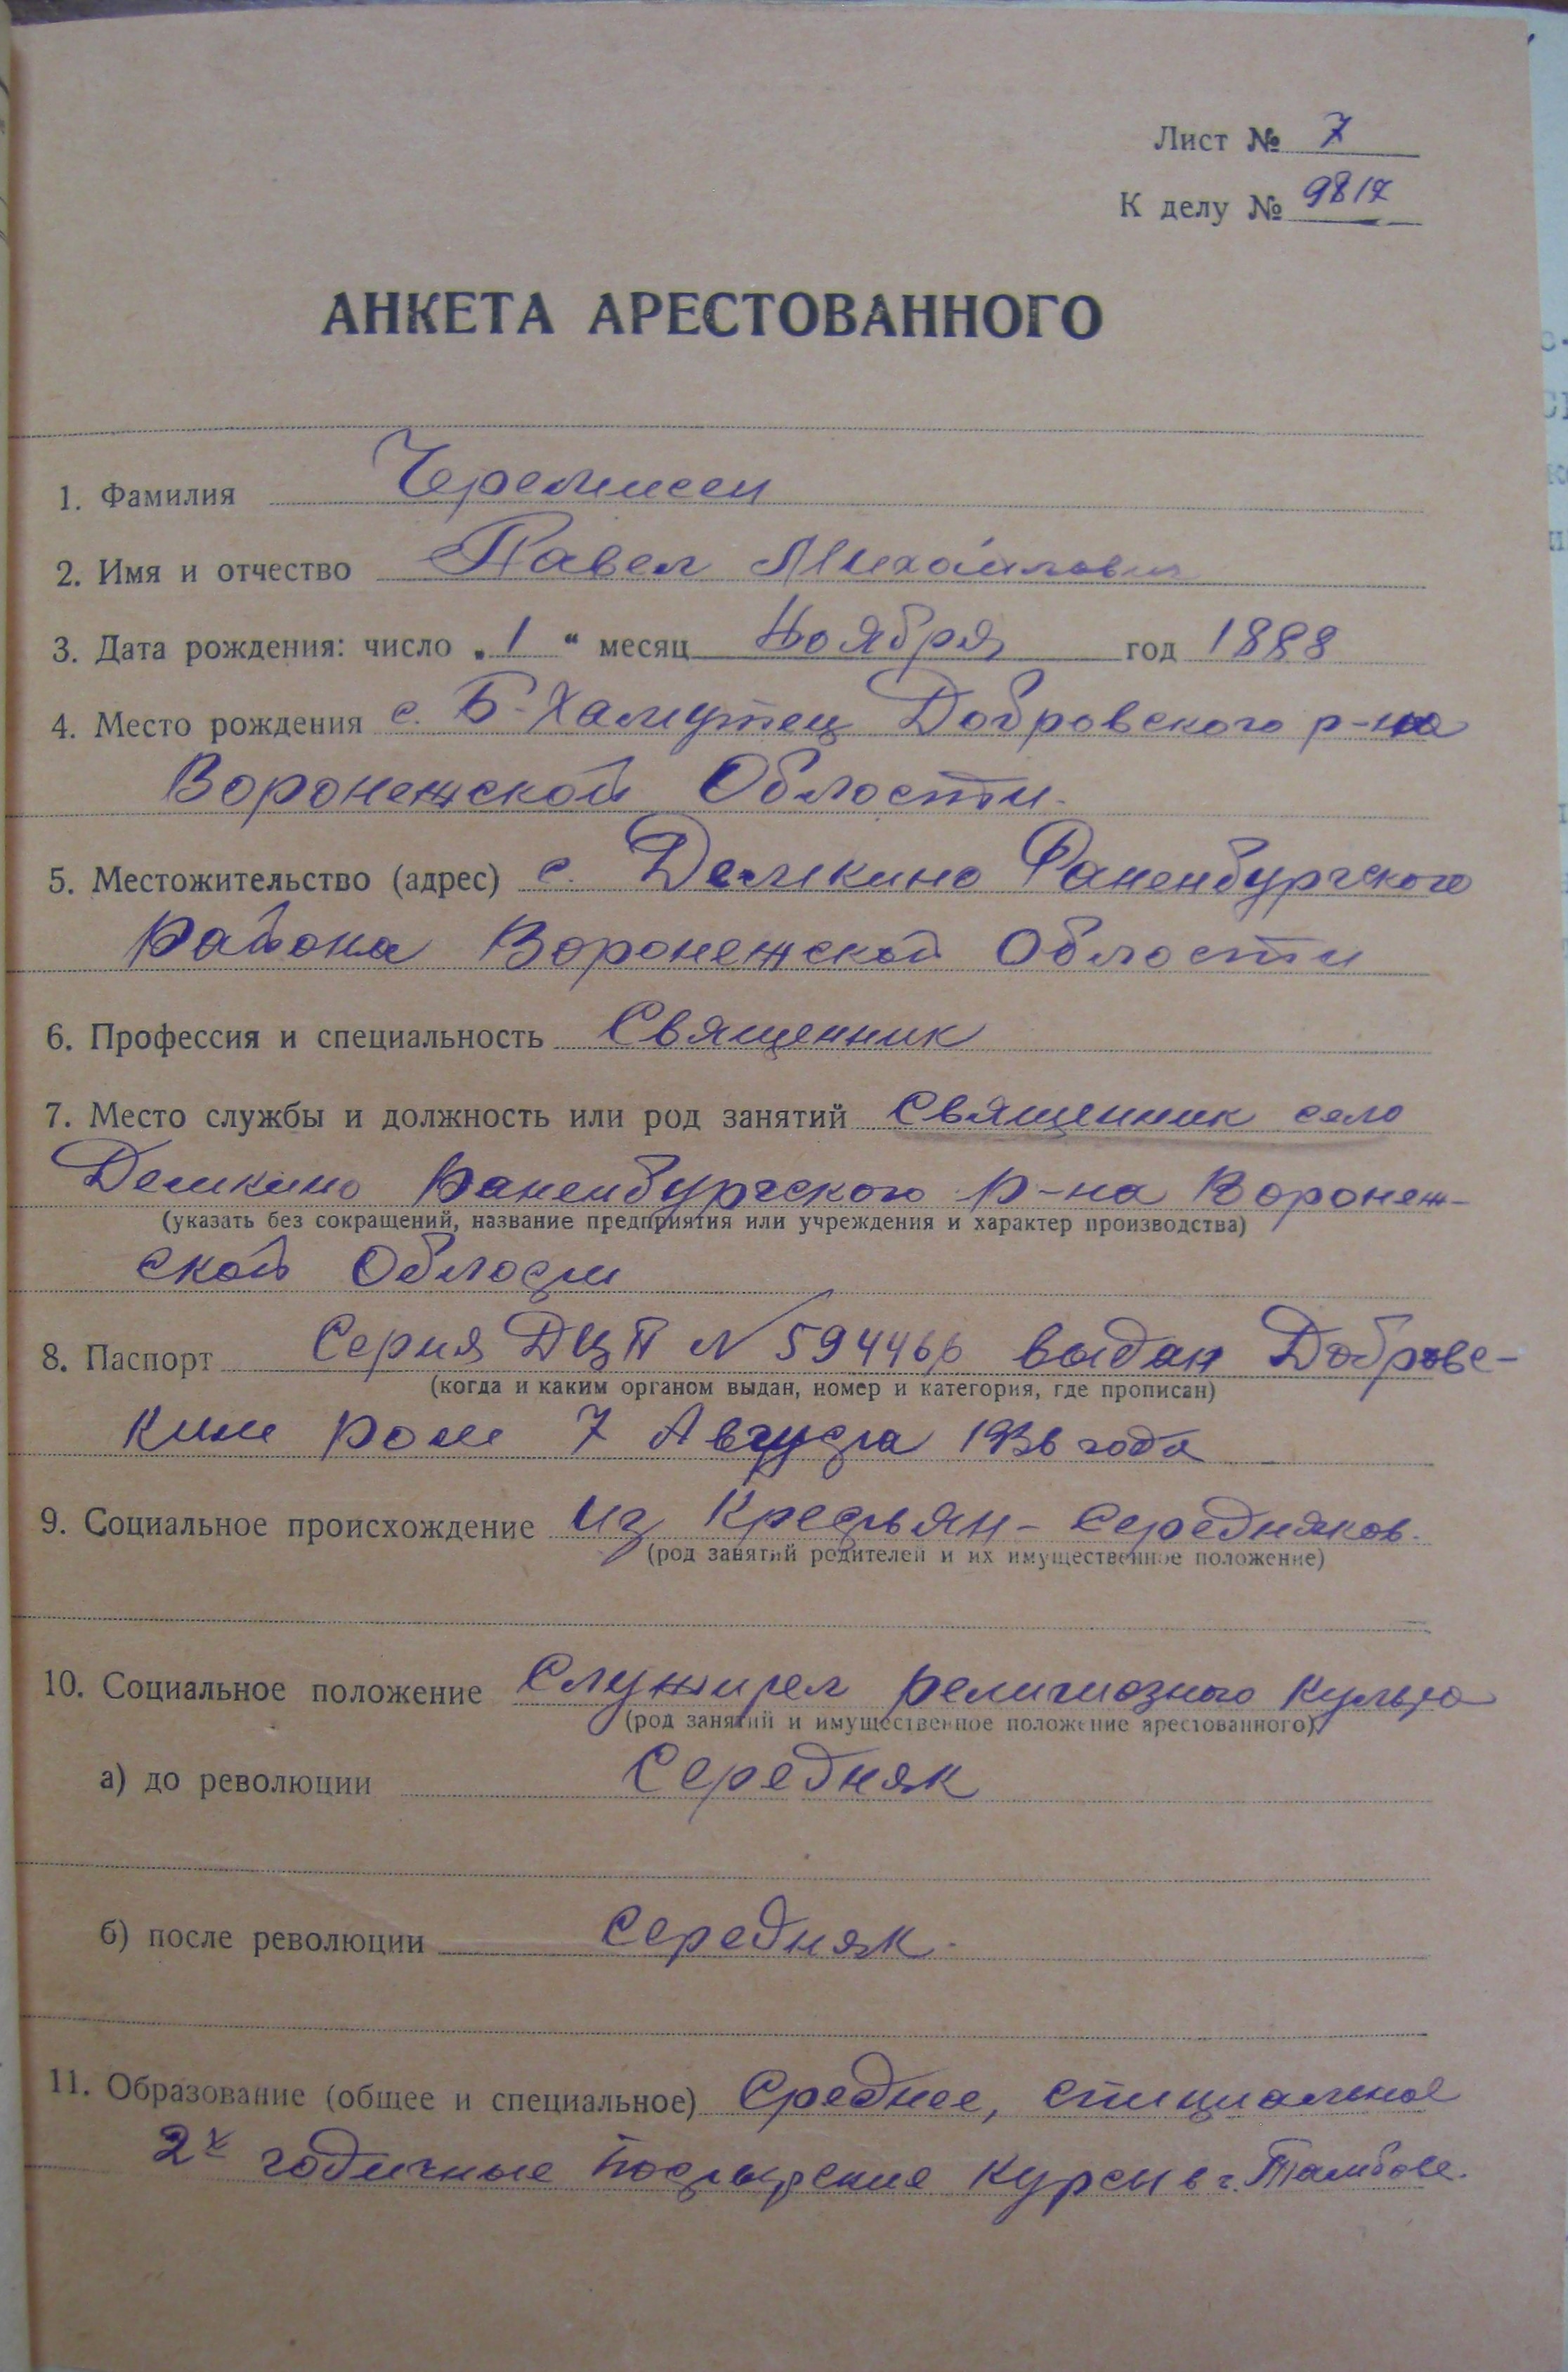 Лист № 7
К делу № 9817
АНКЕТА АРЕСТОВАННОГО
1. Фамилия Черемисен
2. Имя и отчество Павел Михайлович
3. Дата рождения: число „1“ месяц Ноября год 1888
4. Место рождения с. Б-Хамутец Добровского р-на
Воронежской Облости.
5. Местожительство (адрес) с. Демкино Раненбургского
Района Воронежской Облости
6. Профессия и специальность Священник
7. Место службы и должность или род занятий Священник село
Демкино Раненбургского р-на Воронеж-
(указать без сокращений, название предприятия или учреждения и характер производства)
ской Облости
8. Паспорт Серия ДЦП N 594466 выдан Доброве-
(когда и каким органом выдан, номер и категория, где прописан)
ким ром 7 Августа 1936 года
9. Социальное происхождение Из Крестьян-Середняков.
(род занятий родителей и их имущественное положение)
10. Социальное положение Служител религиозного Культа
(род занятий и имущественное положение арестованного)
а) до революции Середняк
б) после революции Середняк.
11. Образование (общее и специальное) Среднее, специальное
2х годичные курсы в г. Тамбове.